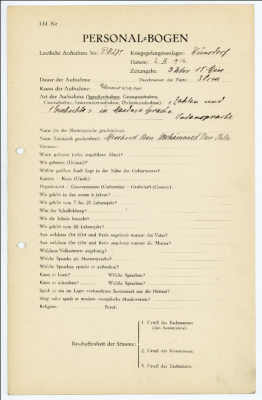 Lfd. Nr
PERSONAL-BOGEN
Lautliche Aufnahme Nr: Kriegsgefangenenlager: Wünsdorf
Datum:
Zeitangabe: 3 Uhr 15 Min
Dauer der Aufnahme: Durchmesser der Platte:
Raum der Aufnahme:
Art der Aufnahme (Sprechaufnahme, Gesangsaufnahme, Choraufnahme, Instrumentenaufnahme, Orchesteraufnahme): Zahlen und
Geschichte in
Name (in der Muttersprache geschrieben):
Name (lateinisch geschrieben): Ben Mohammed Ben
Vorname:
Wann geboren (oder ungefähres Alter)?
Wo geboren (Heimat)?
Welche größere Stadt liegt in der Nähe des Geburtsortes?
Kanton - Kreis (Ujedz):
Departement - Gouvernement (Gubernija) - Grafschaft (County):
Wo gelebt in den ersten 6 Jahren?
Wo gelebt vom 7. bis 20. Lebensjahr?
Was für Schulbildung?
Wo die Schule besucht?
Wo gelebt vom 20. Lebensjahr?
Aus welchem Ort (Ort und Kreis angeben) stammt der Vater?
Aus welchem Ort (Ort und Kreis angeben) stammt die Mutter?
Welchem Volksstamm angehörig?
Welche Sprache als Muttersprache?
Welche Sprachen spricht er außerdem?
Kann er lesen? Welche Sprachen?
Kann er schreiben? Welche Sprachen?
Spielt er ein im Lager vorhandenes Instrument aus der Heimat?
Singt oder spielt er modern europäische Musikweisen?
Religion: Beruf:
1. Urteil des Fachmannes
(des Assistenten):
Beschaffenheit der Stimme:
2. Urteil des Kommissars:
3. Urteil des Technikers: